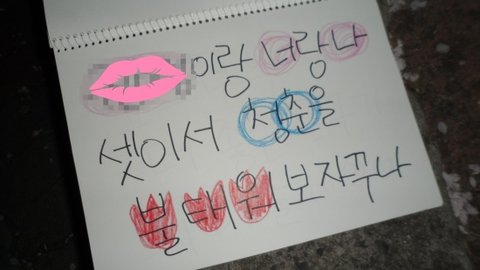 이랑 너랑 나
셋이서 청춘을
불태워 보자꾸나